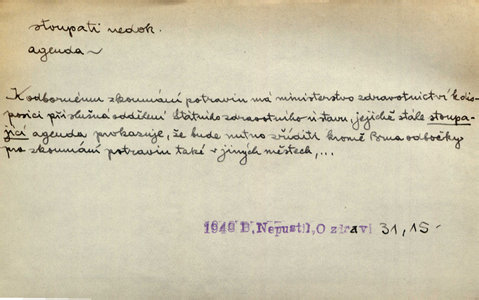 stoupati nedok.
agenda~
K odbornému zkoumání potravin má ministerstvo zdravotnictví k dis-
posici příslušná oddělení Státního zdravotního ústavu, jejichž stále stoupa-
jící agenda prokazuje, že bude nutno zříditi kromě Brna odbočky
pro zkoumání potravin také v jiných městech,...
1946 B.Nepustil,O zdraví 31,15-